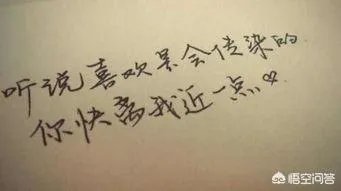 听说喜欢是会传染的
你快离我近一点
悟空问答